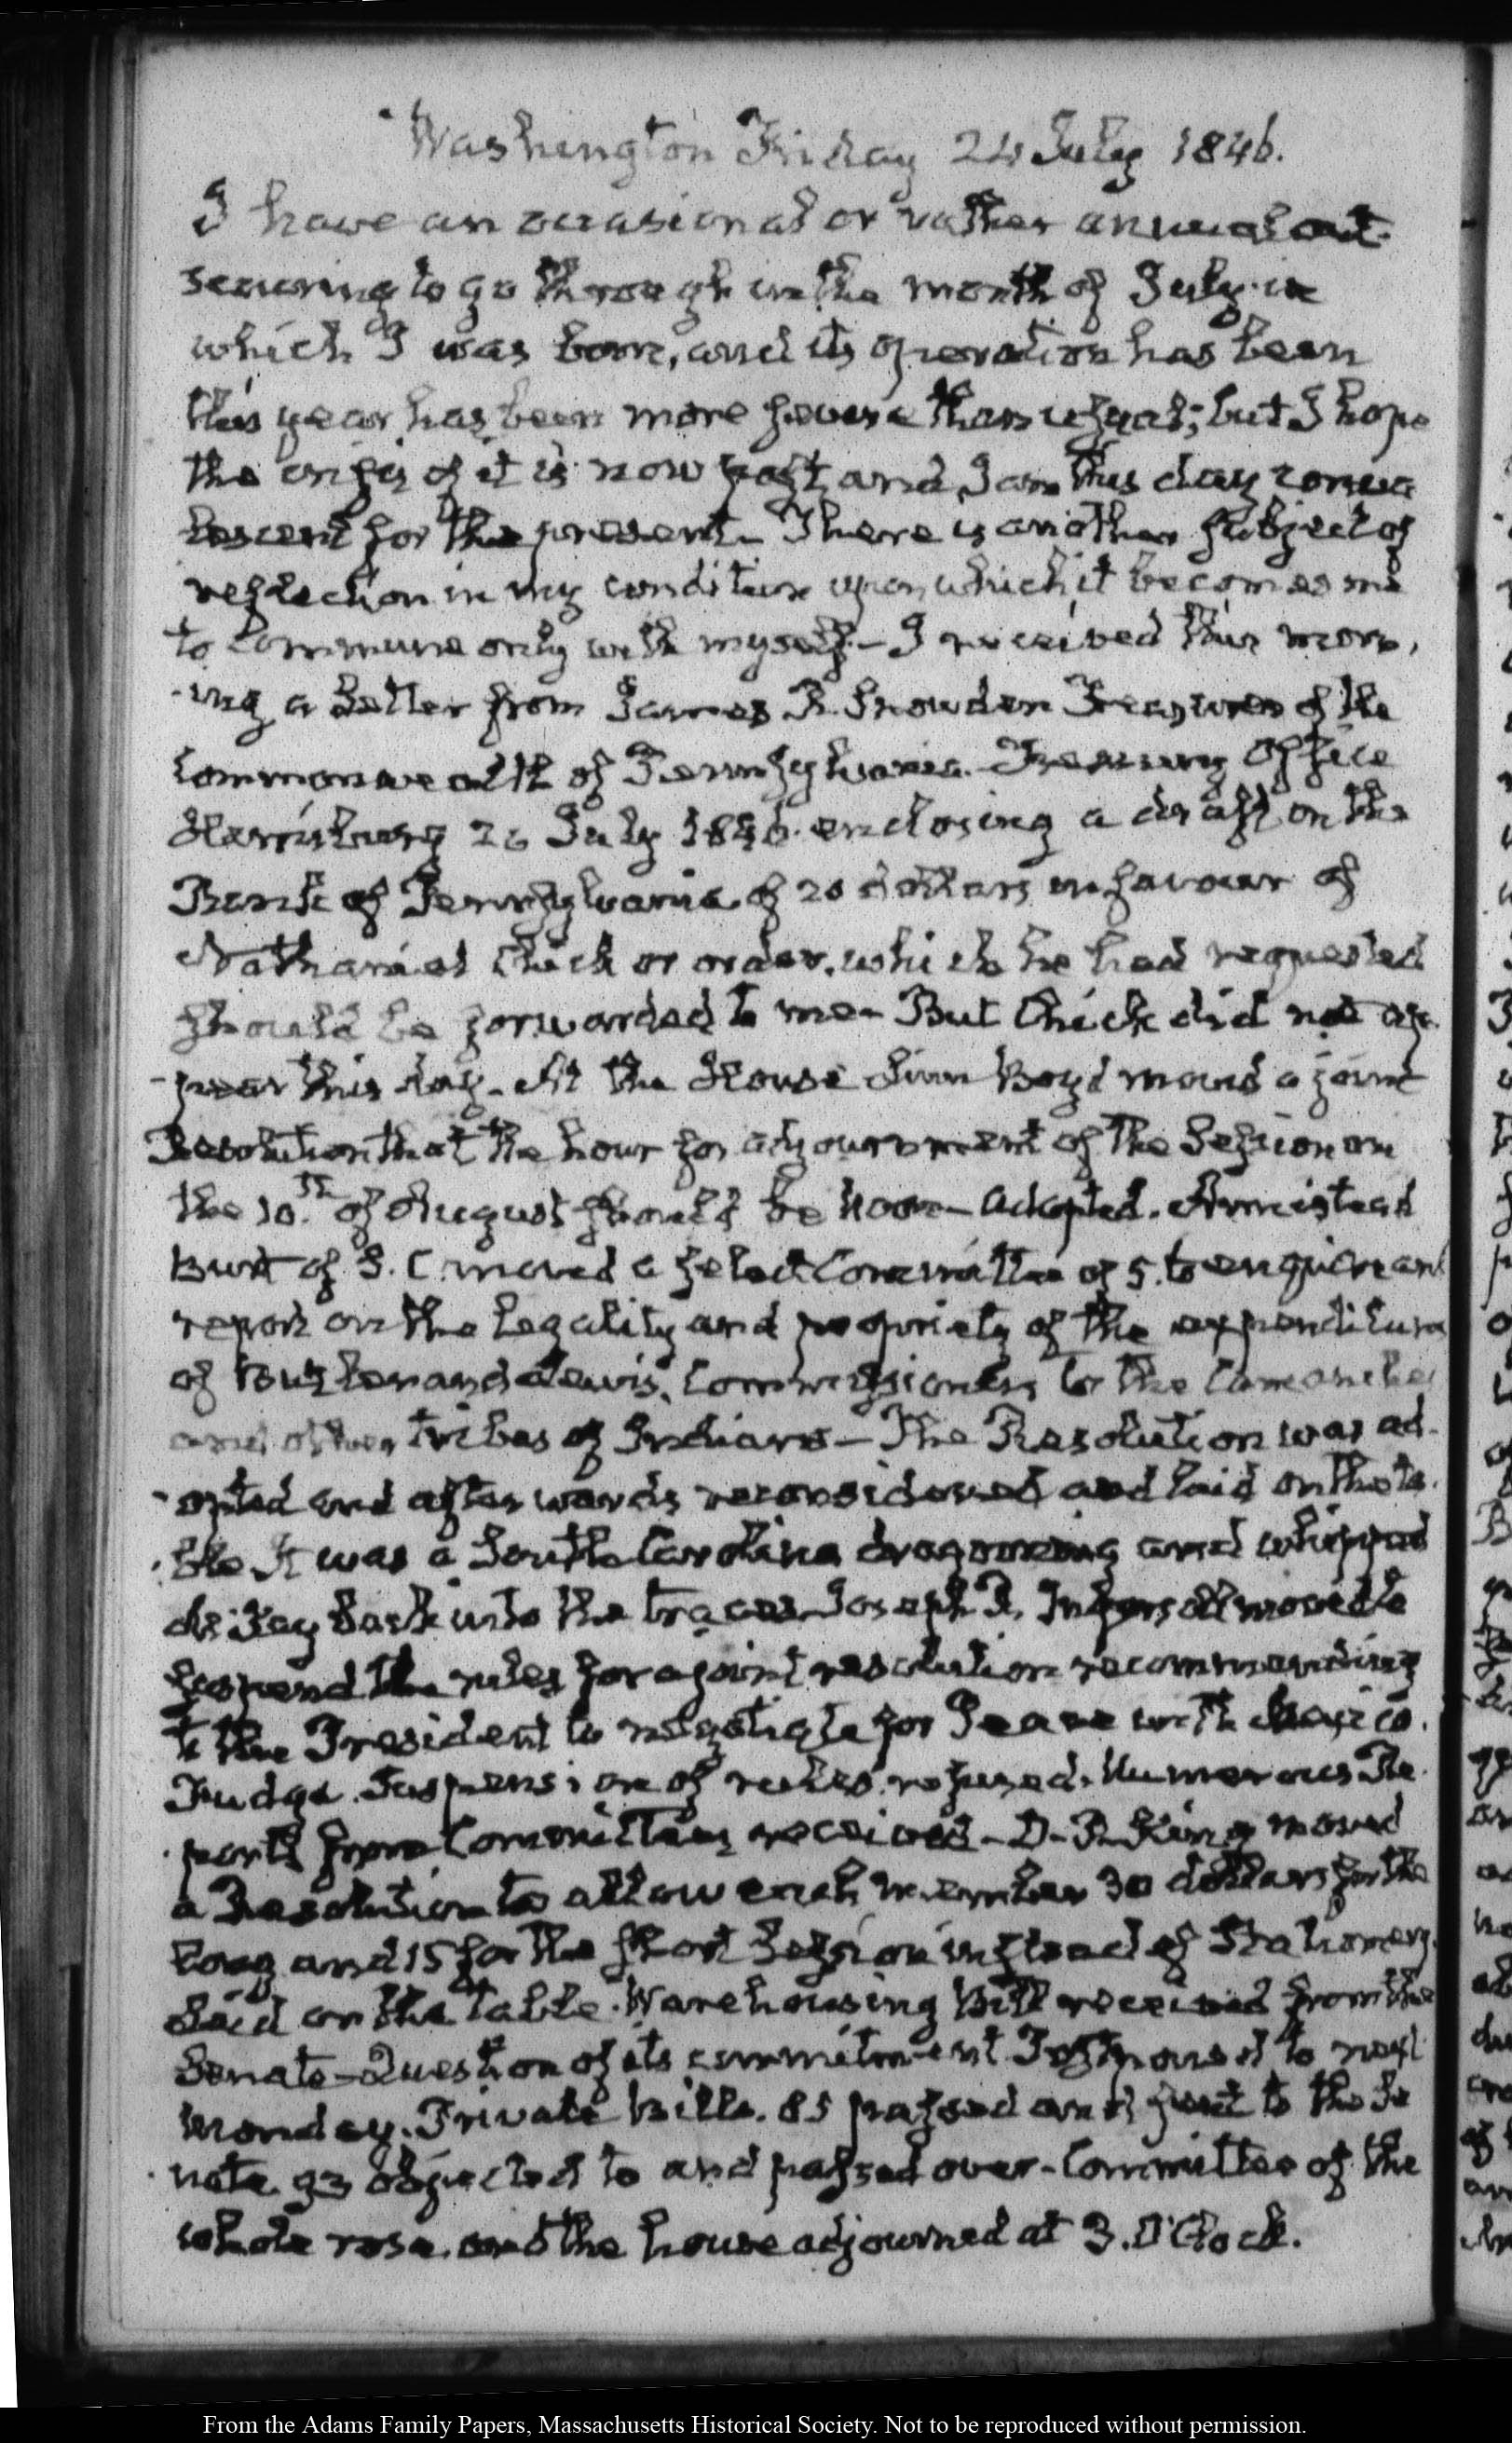 Washington Friday 24 July 1846.
I have an occasional or rather annual
to go through in the month of July in
which I was born, and its operation has been
this year has been more severe than usual; but I hope
the crisis of it is now past, and I am this day convale
scent for the present. There is another subject of
reflection in my condition upon which it becomes me
to commune only with myself.— I received this morn,
-ing a Letter from James R. Snowden Treasurer of the
Commonwealth of Pennsylvania. Treasury Office
Harrisburg July 1846. enclosing a draft on the
Bank of Pennsylvania of 20 dollars in favour of
Nathaniel Chick or order, which he had requested
should be forwarded to me— But Chick did not ap.
-pear this day— At the House Linn Boyd moved a joint
Resolution that the hour for adjournment of the Session on
the 10.th of August should be noon— adopted. Armistead
Burt of S. C. moved a select Committee of 5. to enquire and
report on the legality and propriety of the expenditures
of Butler and Lewis, Commissioners to the Comanche
and other tribes of Indians— The Resolution was ad-
-opted and afterwards reconsidered and laid on the ta-
-ble It was a South Carolina dragooning and whipped
back into the traces Joseph R. Ingersoll moved to
suspend the rules for a joint resolution recommending
to the President to negotiate for Peace with Mexico.
Fudge. Suspension of rules refused. Numerous Re-
-ports from Committees received— D. P. King moved
a Resolution to allow each member 30 dollars for the
long and 15 for the short Session instead of Stationery.
Laid on the table. Warehousing Bill received from the
Senate— Question of its commitment Postponed to next
Monday. Private bills. 85 passed and sent to the Se
-nate. 93 objected to and passed over— Committee of the
whole rose. and the house adjourned at 3. O'Clock.
From the Adams Family Papers, Massachusetts Historical Society. Not to be reproduced without permission.